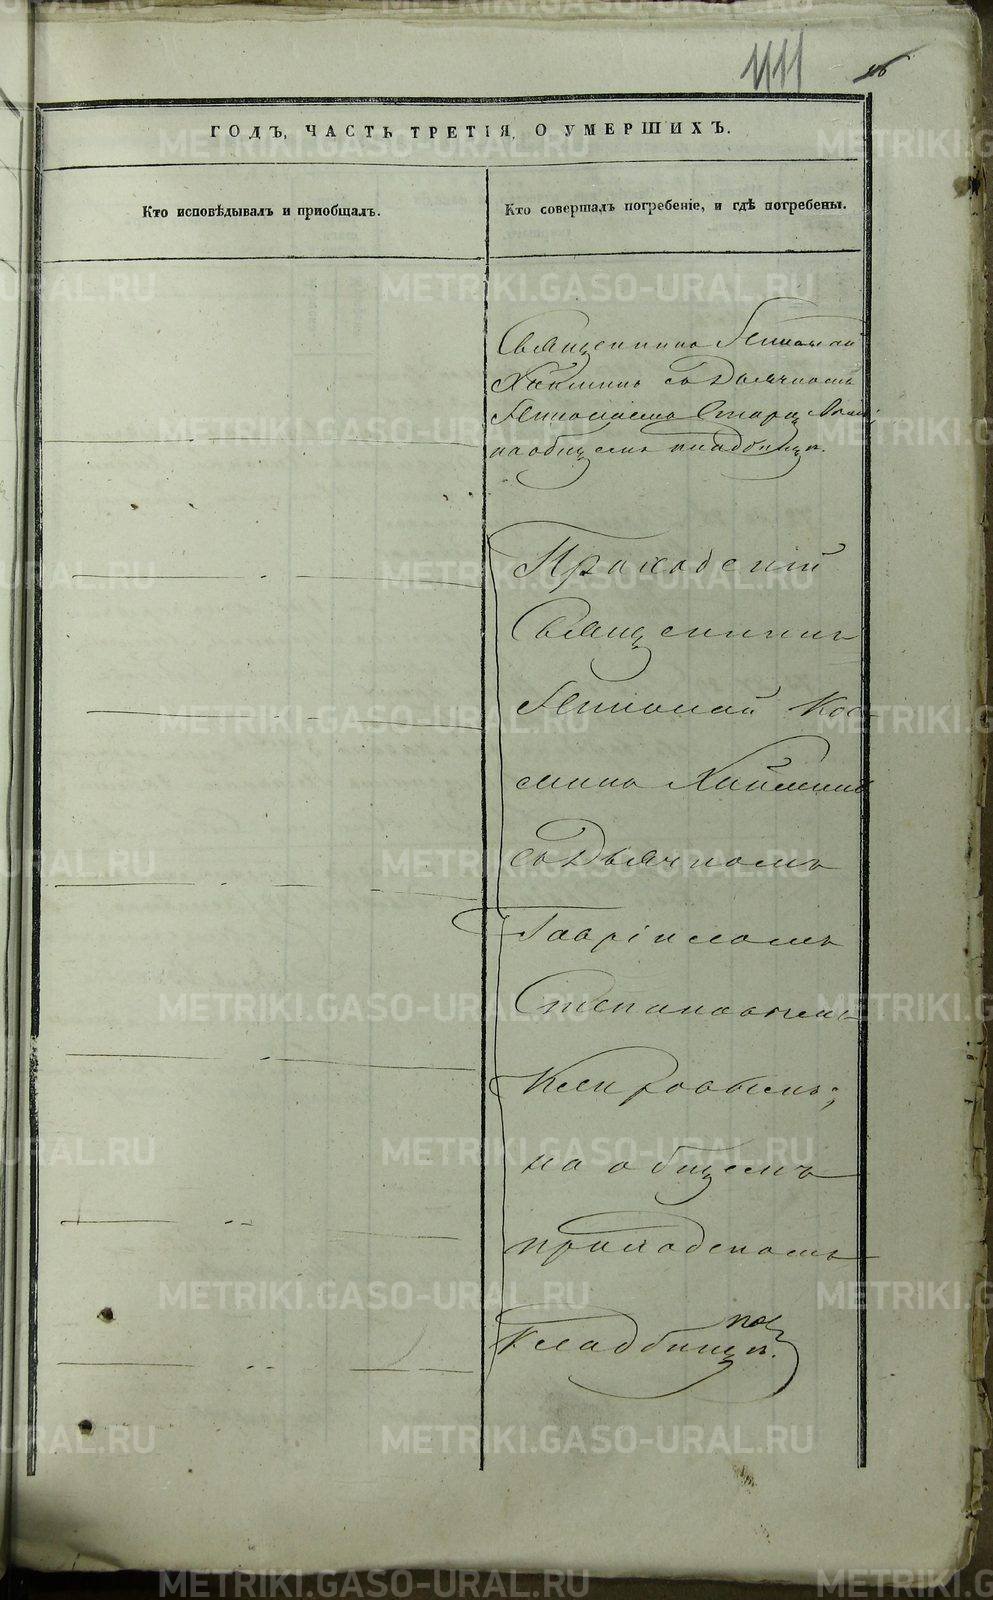 411
56
ГОДЪ, ЧАСТЬ ТРЕТІЯ, О УМЕРШИХЪ.
Кто исповѣдывалъ и пріобщалъ.
Кто совершалъ погребеніе, и гдѣ погребены.
Священникъ Николай
съ Дьячкомъ
на общемъ кладбищѣ.
Приходскій
Священникъ
Николай Кос-
минъ
съ Дьячкомъ
Гавріиломъ
Степановымъ
на общемъ
приходскомъ
кладбищѣ.
METRIKI.GASO-URAL.RU